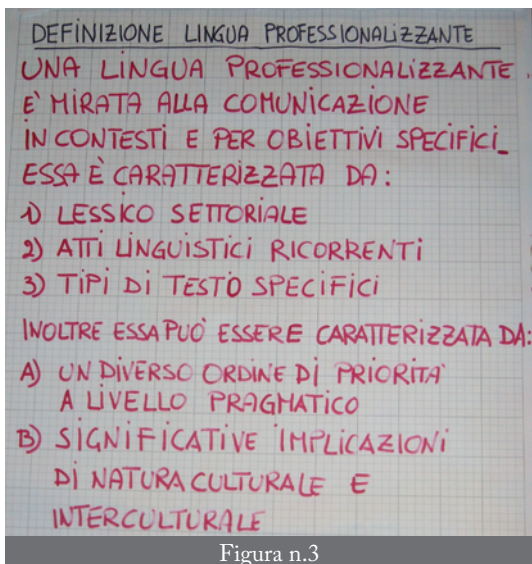 DEFINIZIONE LINGUA PROFESSIONALIZZANTE
UNA LINGUA PROFESSIONALIZZANTE
E' MIRATA ALLA COMUNICAZIONE
IN CONTESTI E PER OBIETTIVI SPECIFICI_
ESSA È CARATTERIZZATA DA:
1) LESSICO SETTORIALE
2) ATTI LINGUISTICI RICORRENTI
3) TIPI DI TESTO SPECIFICI
INOLTRE ESSA PUO' ESSERE CARATTERIZZATA DA:
A) UN DIVERSO ORDINE DI PRIORITA'
A LIVELLO PRAGMATICO
B) SIGNIFICATIVE IMPLICAZIONI
DI NATURA CULTURALE E
INTERCULTURALE
Figura n.3